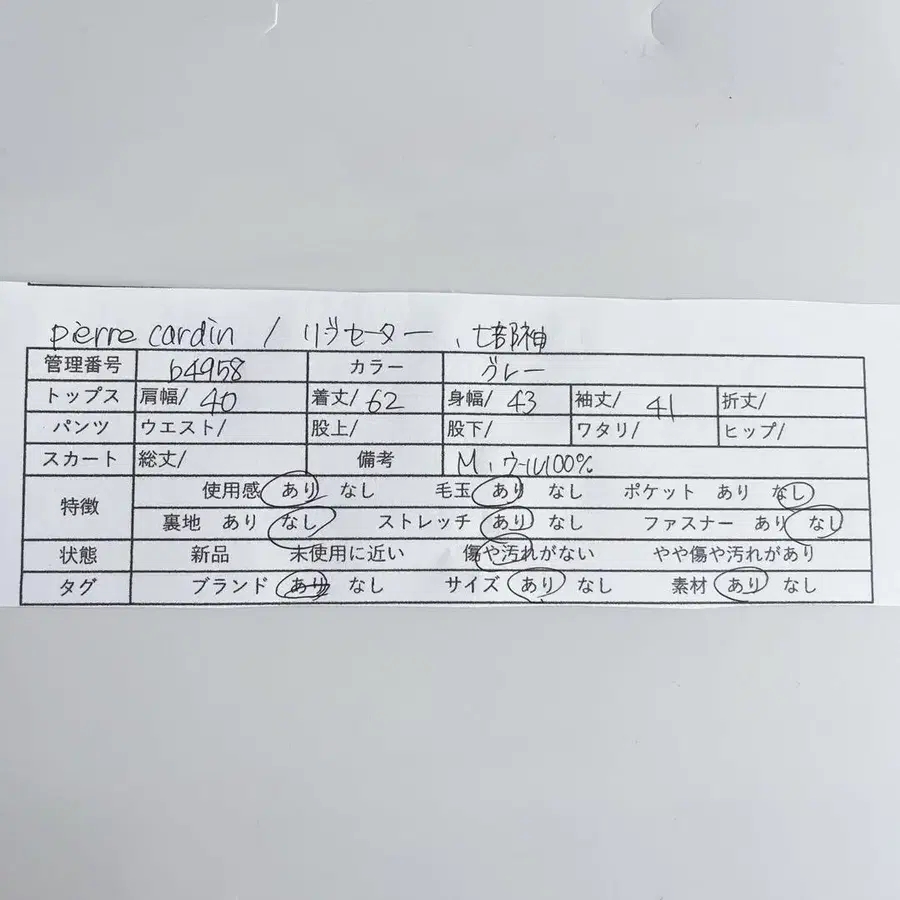 pierre cardin / リブセーター、七部袖
管理番号 b4958 カラー グレー
トップス 肩幅/ 40 着丈/ 62 身幅/ 43 袖丈/ 41 折丈/
パンツ ウエスト/ 股上/ 股下/ ワタリ/ ヒップ/
スカート 総丈/ 備考 M、ウール100%
特徴 使用感 あり なし 毛玉 あり なし ポケット あり なし
裏地 あり なし ストレッチ あり なし ファスナー あり なし
状態 新品 未使用に近い 傷や汚れがない やや傷や汚れがあり
タグ ブランド あり なし サイズ あり なし 素材 あり なし